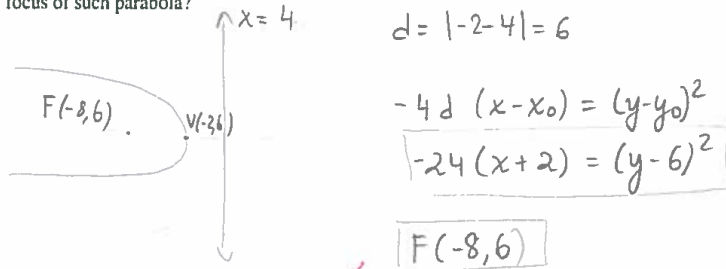 focus of such parabola?
x = 4
F(-8,6)
V(-2,6)
d = |-2-4| = 6
-4d (x-x₀) = (y-y₀)²
-24(x+2) = (y-6)²
F(-8,6)